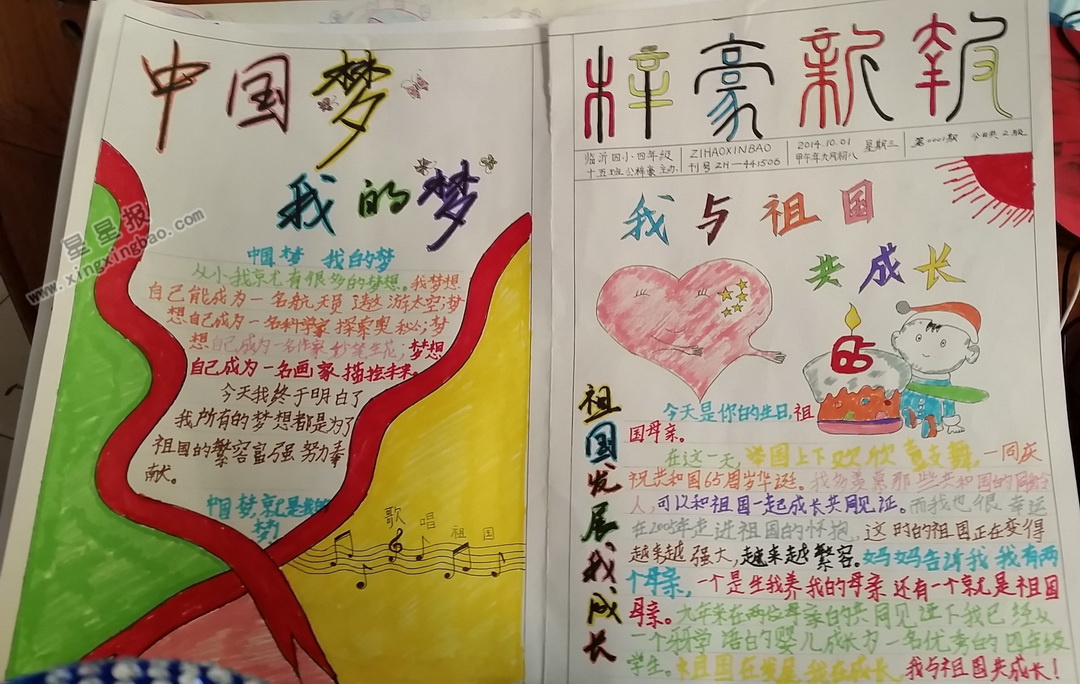 中国梦
我的梦
星星报
www.xingxingbao.com
中国梦 我的梦
从小我就有很多的梦想。我梦想
自己能成为一名航天员遨游太空;梦
想自己成为一名科学家 探索奥秘;梦
想自己成为一名作家 妙笔生花;梦想
自己成为一名画家 描绘未来。
今天我终于明白了
我所有的梦想都是为了
祖国的繁容富强努力奉
献。
中国梦就是我的
梦
歌唱祖国
梓豪新報
临沂四小四年级
十五班公梓豪 主办
ZIHAOXINBAO
刊号 ZH—441506
2014.10.01 星期三
甲午年九月初八
第0001期 今日共2版
我与祖国
共成长
65
祖国发展我成长
今天是你的生日,祖
国母亲。
在这一天,举国上下欢欣鼓舞,一同庆
祝共和国65周岁华诞。我羡慕那些共和国的同龄
人,可以和祖国一起成长共同见证。而我也很幸运
在2005年走进祖国的怀抱,这时的祖国正在变得
越来越强大,越来越繁容。妈妈告诉我 我有两
个母亲,一个是生我养我的母亲 还有一个就是祖国
母亲。九年来在两位母亲的共同见证下我已经从
一个牙学语的婴儿成长为一名优秀的四年级
学生。祖国在发展 我在成长 我与祖国共成长!